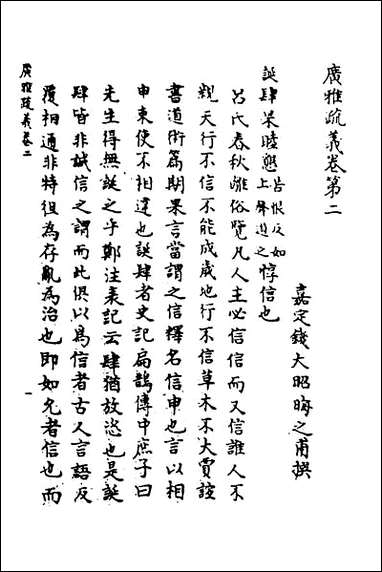 廣雅疏義卷第二
嘉定錢大昭晦之甫撰
誕肆杲睦 皆恨反如上聲道之 惇信也
呂氏春秋離俗覽凡人主必信信而又信誰人不
親天行不信不能成歲地行不信草木不大賈誼
書道術篇期果言當謂之信釋名信申也言以相
申束使不相違也誕肆者史記扁鵲傳中庶子曰
先生得無誕之乎鄭注表記云肆猶放恣也是誕
肆皆非誠信之謂而此俱以爲信者古人言語反
覆相通非特徂為存亂為治也即如允者信也而
廣雅疏義卷二
一